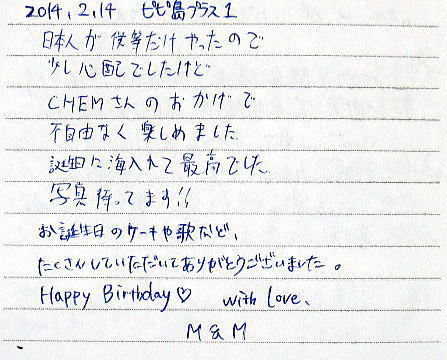 2014.2.14 ピピ島プラス1
日本人が 彼等だけ やったので
少し心配でしたけど
CHEMさんのおかげで
不自由なく 楽しめました
誕生日に海入れて最高でした
写真待ってます!!
お誕生日のケーキや歌など、
たくさんしていただいてありがとうございました。
Happy Birthday♡ with Love、
M & M